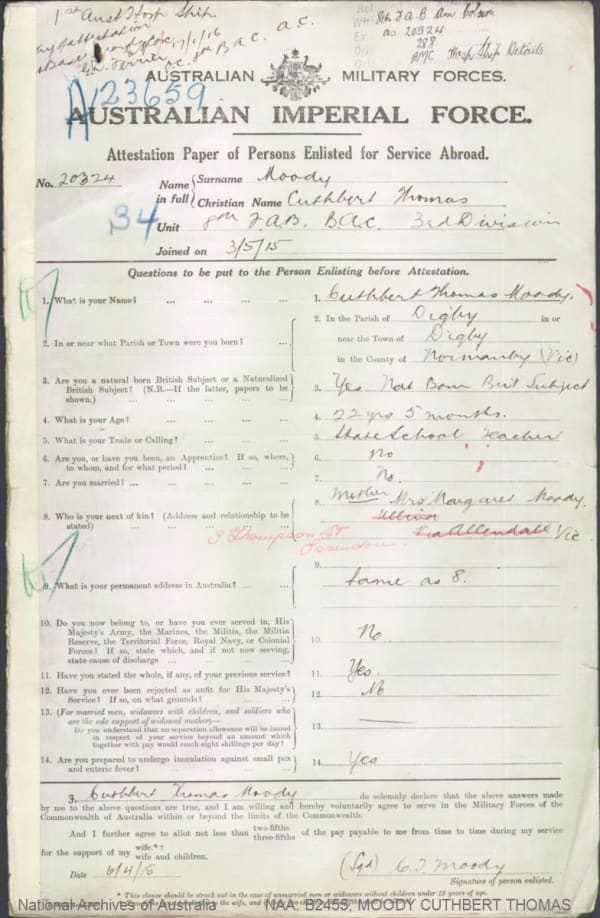 1st Aust Hosp Ship
17/1/16
8th F A B Am Column
as 20324
AMC Hosp Ship Details
A123659
AUSTRALIAN MILITARY FORCES.
AUSTRALIAN IMPERIAL FORCE.
Attestation Paper of Persons Enlisted for Service Abroad.
No. 20324
Name in full { Surname Moody
Christian Name Cuthbert Thomas
34
Unit 8th F.A.B. B.A.C. 3rd Division
Joined on 3/5/15
Questions to be put to the Person Enlisting before Attestation.
1. What is your Name? ... ... ... ... 1. Cuthbert Thomas Moody.
2. In or near what Parish or Town were you born? ... 2. In the Parish of Digby in or
near the Town of Digby
in the County of Normanby (Vic)
3. Are you a natural born British Subject or a Naturalized
British Subject? (N.B.—If the latter, papers to be
shown.) ... ... ... ... 3. Yes Nat Born Brit Subject
4. What is your Age? ... ... ... ... 4. 22 yrs 5 months.
5. What is your Trade or Calling? ... ... ... 5. State School Teacher
6. Are you, or have you been, an Apprentice? If so, where,
to whom, and for what period? ... ... ... 6. No
7. Are you married? ... ... ... ... 7. No.
8. Who is your next of kin? (Address and relationship to be
stated) ... ... ... ... 8. Mother Mrs Margaret Moody.
Ullina
Via Allendale Vic
Thompson St.
Essendon.
9. What is your permanent address in Australia? ... ... 9. Same as 8.
10. Do you now belong to, or have you ever served in, His
Majesty's Army, the Marines, the Militia, the Militia
Reserve, the Territorial Force, Royal Navy, or Colonial
Forces? If so, state which, and if not now serving,
state cause of discharge ... ... ... 10. No.
11. Have you stated the whole, if any, of your previous service? 11. Yes.
12. Have you ever been rejected as unfit for His Majesty's
Service? If so, on what grounds? ... ... 12. No
13. (For married men, widowers with children, and soldiers who
are the sole support of widowed mother)—
Do you understand that no separation allowance will be issued
in respect of your service beyond an amount which
together with pay would reach eight shillings per day? 13. —
14. Are you prepared to undergo inoculation against small pox
and enteric fever? ... ... ... ... 14. Yes
I, Cuthbert Thomas Moody do solemnly declare that the above answers made
by me to the above questions are true, and I am willing and hereby voluntarily agree to serve in the Military Forces of the
Commonwealth of Australia within or beyond the limits of the Commonwealth.
And I further agree to allot not less than two-fifths three-fifths of the pay payable to me from time to time during my service
for the support of my wife.*† wife and children.
Date 6/4/15 (Sgd) C. T. Moody
Signature of person enlisted.
* This clause should be struck out in the case of unmarried men or widowers without children under 18 years of age.
National Archives of Australia NAA: B2455, MOODY CUTHBERT THOMAS